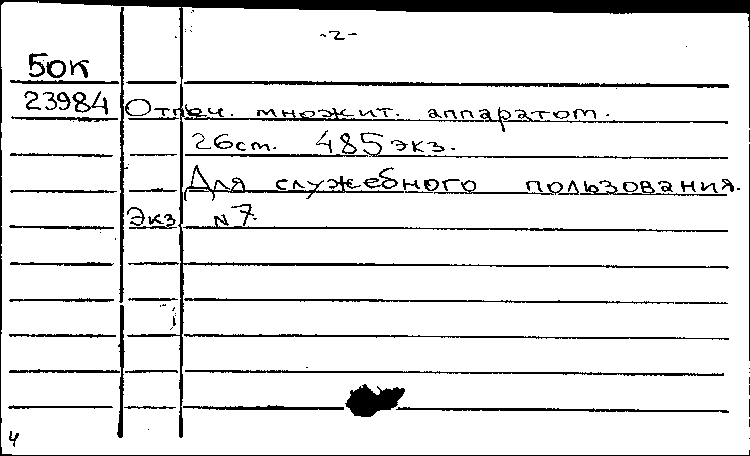 -2-
БОК
23984 Отпеч. множит. аппаратом.
26 ст. 485 экз.
Для служебного пользования.
Экз N 7.
4